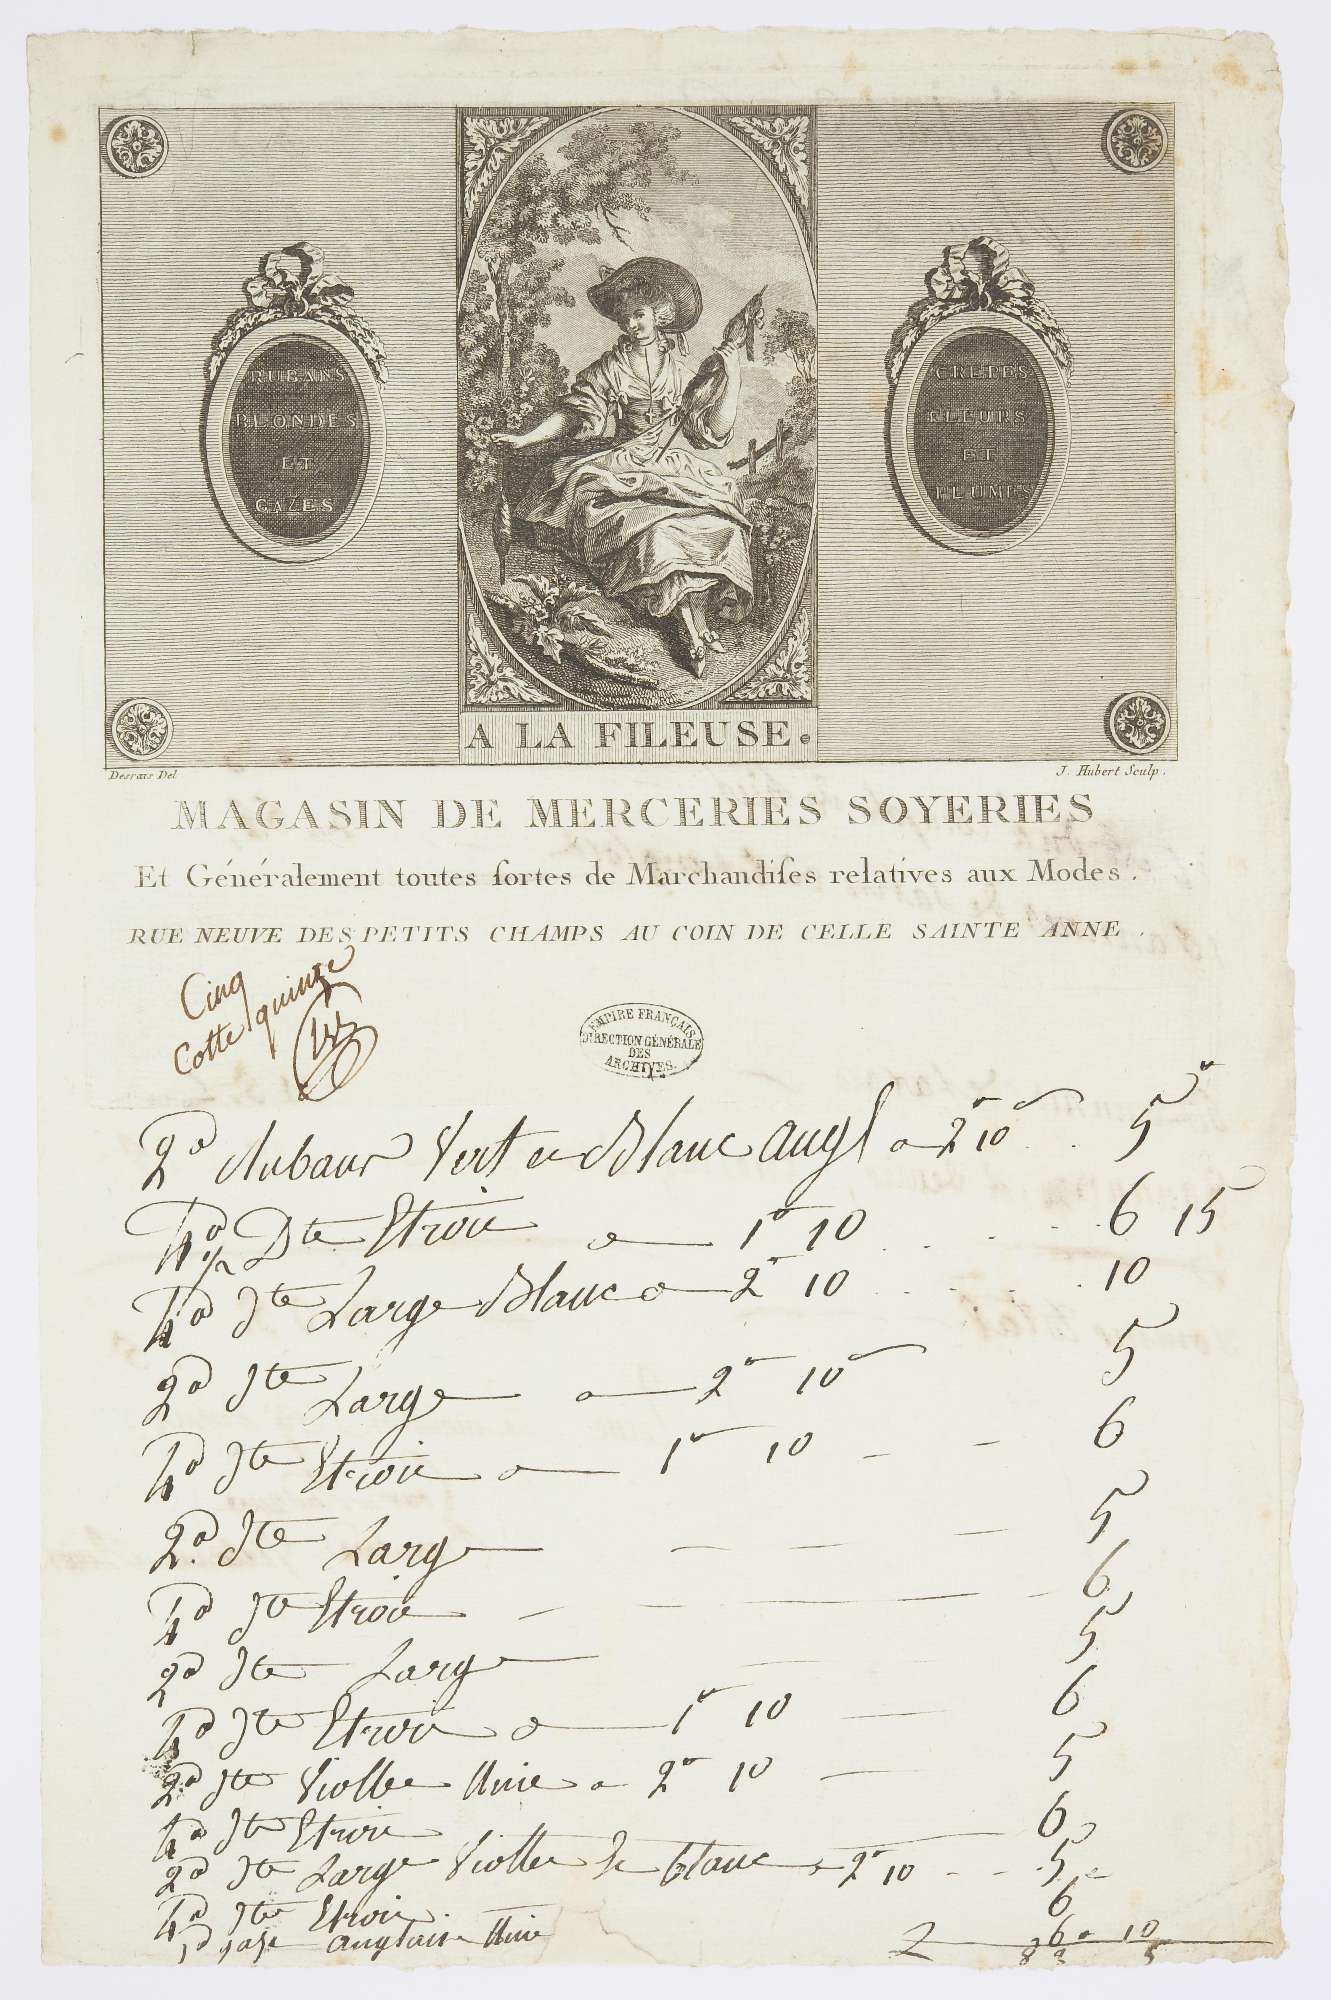 RUBANS
BLONDES
ET
GAZES
CREPES
FLEURS
ET
PLUMES
A LA FILEUSE.
Desrais Del
J. Hubert Sculp.
MAGASIN DE MERCERIES SOYERIES
Et Généralement toutes ſortes de Marchandiſes relatives aux Modes.
RUE NEUVE DES PETITS CHAMPS AU COIN DE CELLE SAINTE ANNE.
Cinq
Cotte quinze
EMPIRE FRANÇAIS
DIRECTION GÉNÉRALE
DES
ARCHIVES.
2 Rubans Vert Blanc angl a 2 10 5
4 1/2 Dte Etroit a 1 10 6 15
4 Dte Large Blanc a 2 10 10
2 Dte Large a 2 10 5
4 Dte Etroit a 1 10 6
2 Dte Large 5
4 Dte Etroit 6
2 Dte Large 5
4 Dte Etroit a 1 10 6
2 Dte Violle Unie a 2 10 5
4 Dte Etroit 6
2 Dte Large Violle blanc a 2 10 5
4 Dte Etroit 6
1 anglaise Unie 6 10
83 5